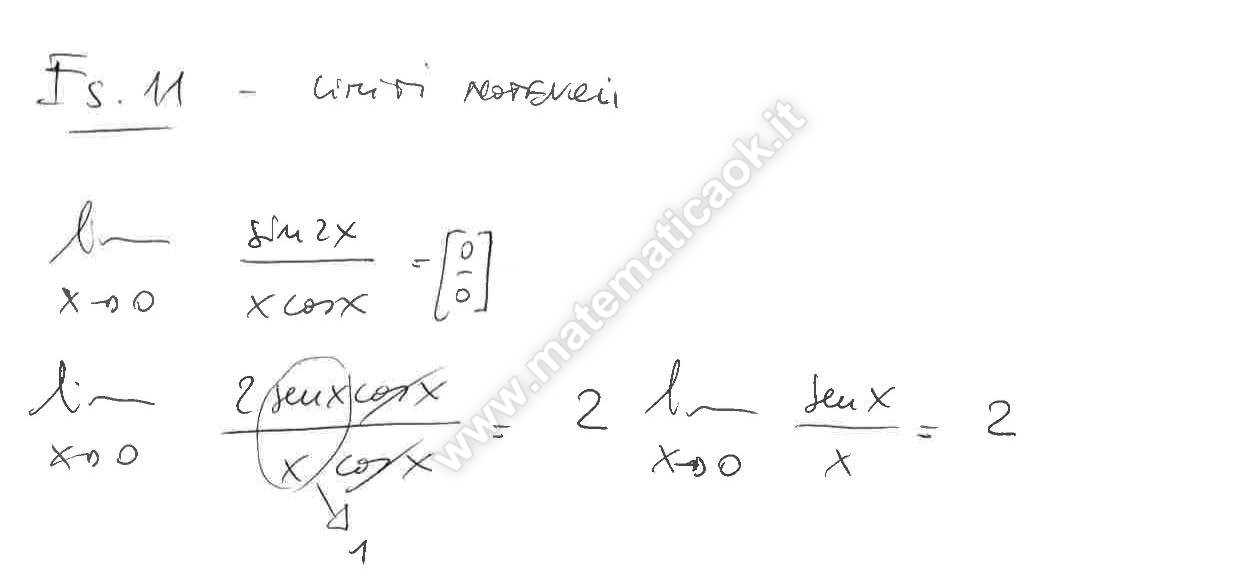 Es. 11 - LIMITI NOTEVOLI
lim x→0 sin 2x / x cos x = [0/0]
lim x→0 2 sen x cos x / x cos x = 2 lim x→0 sen x / x = 2
1
www.matematicaok.it